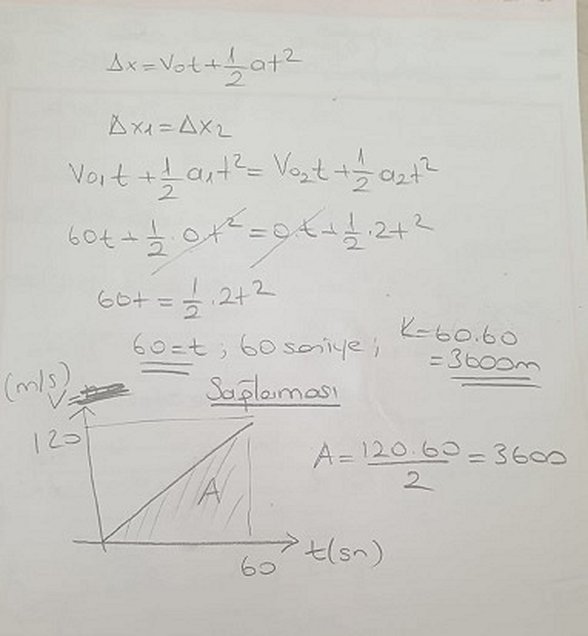 Δx=V₀t+1/2at²
Δx₁=Δx₂
V₀₁t+1/2a₁t²=V₀₂t+1/2a₂t²
60t+1/2.0t²=0.t+1/2.2t²
60t=1/2.2t²
60=t; 60 saniye; K=60.60
=3600m
Sağlaması
(m/s)
V
120
A
60
t(sn)
A=120.60/2=3600